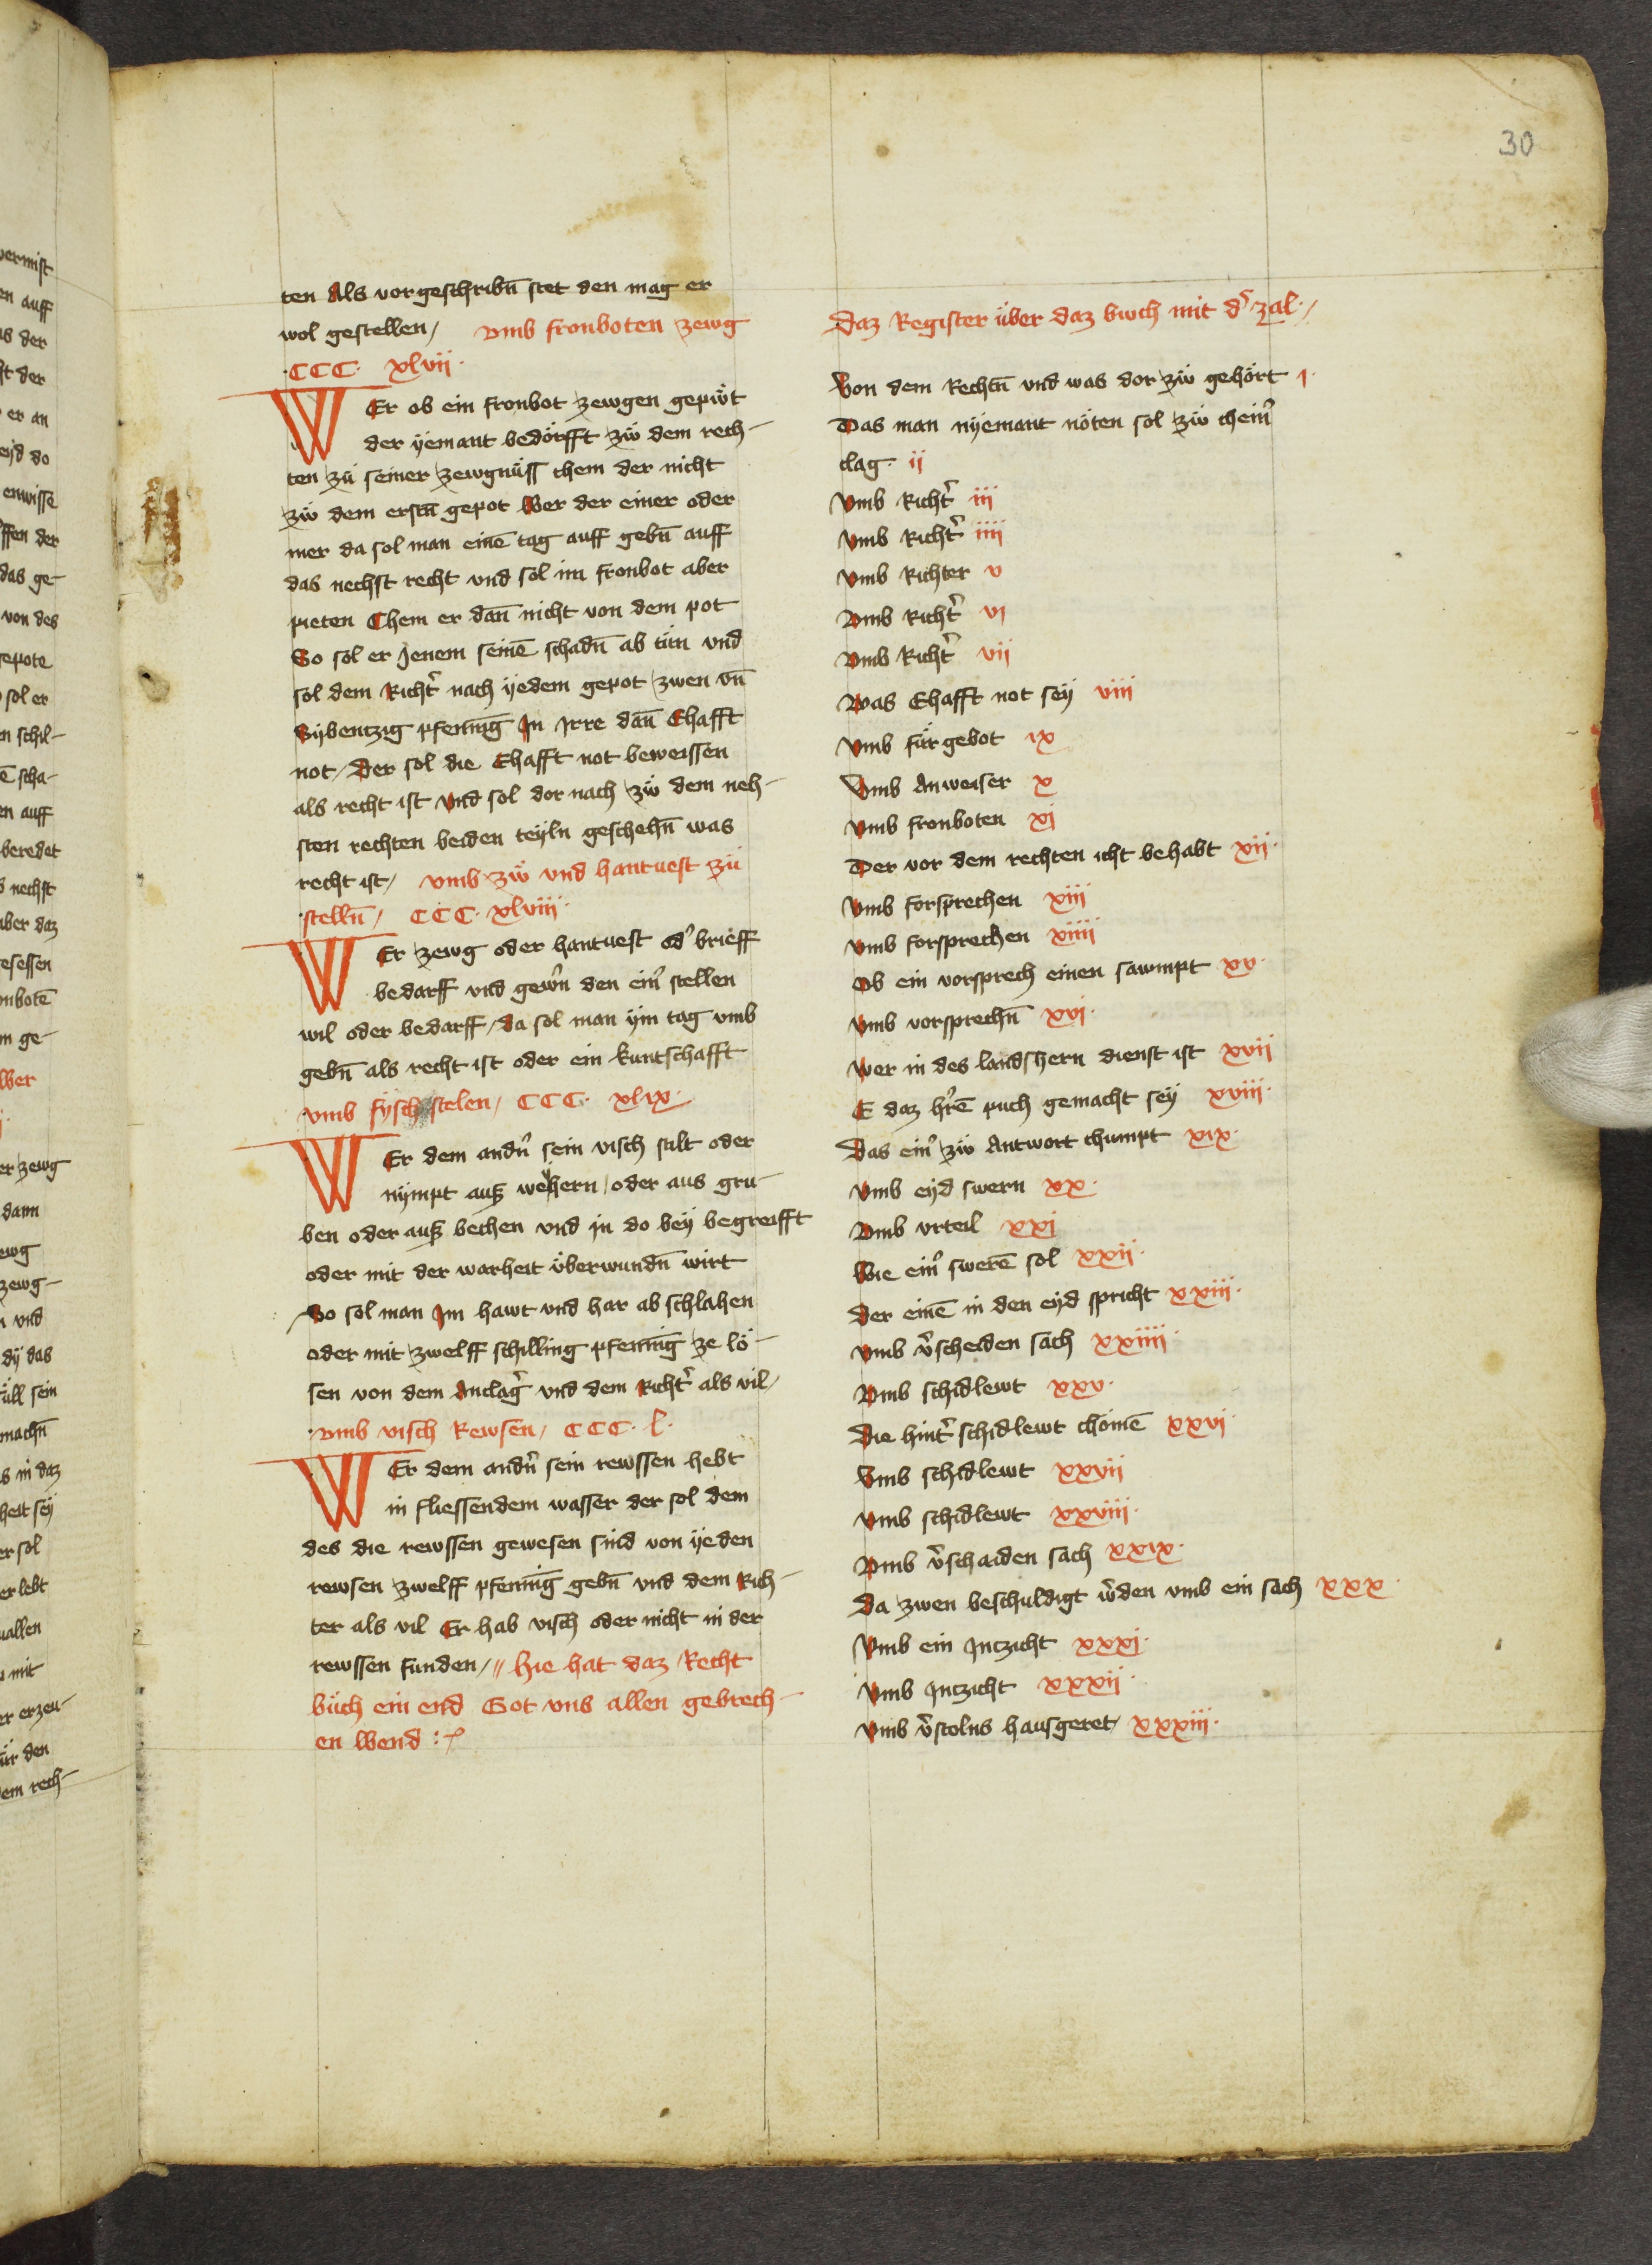 30
ten Als vorgeschribn̄ stet den mag er
wol gestellen / vmb fronboten zewg
·CCC· xlvii·
WEr ob ein fronbot zewgen gepiẅt
der yemant bedörfft zẅ dem rech-
ten zü seiner zewgnüss chem der nicht
zẅ dem erstn̄ gepot Wer der einer oder
mer da sol man einē tag auff gebn̄ auff
das nechst recht vnd sol im fronbot aber
pieten Chem er dan̄ nicht von dem pot
So sol er Jenem seinē schadn̄ ab tün vnd
sol dem Richt᷑ nach yedem gepot zwen vn̄
Sybentzig pfenīng In Irre dan̄ Ehafft
not / Der sol die Ehafft not beweissen
als recht ist Vnd sol dor nach zẅ dem neh-
sten rechten beiden teyln geschehn̄ was
recht ist / vmb zẅ vnd hantuest zü
stelln̄ / CCC· xlviii·
WEr zewg oder hantuest od᷑ brieff
bedarff vnd gew᷑n den ein᷑ stellen
wil oder bedarff / da sol man ym tag vmb
gebn̄ als recht ist oder ein kuntschafft
vmb fysch stelen / CCC· xlix·
WEr dem andn᷑ sein visch stilt oder
nympt auß weyhern / oder aus gru-
ben oder auß bechen vnd in do bey begreifft
oder mit der warheit überwundn̄ wirt
So sol man Im hawt vnd har ab schlahen
oder mit zwelff schilling pfenīng ze lö-
sen von dem Anclag᷑ vnd dem Richt᷑ als vil /
·vmb visch Rewsen / CCC· l·
WEr dem andn᷑ sein rewssen hebt
in fliessendem wasser der sol dem
des die rewssen gewesen sind von yeden
rewsen zwelff pfenīng gebn̄ vnd dem Rich-
ter als vil Er hab visch oder nicht in der
rewssen funden / // Hie hat daz Recht
büch ein end Got vns allen gebrech-
en Wend :
Daz Register über daz buch mit d᷑ zal· /
Von dem Rechtn̄ vnd was dor zẅ gehört i·
Das man nyemant nöten sol zẅ chein᷑
clag· ii
Vmb Richt᷑ iii
Vmb Richt᷑ iiii
Vmb Richter v
Vmb Richt᷑ vi
Vmb Richt᷑ vii
Was Ehafft not sey viii
Vmb fürgebot ix
Vmb Anweiser x
Vmb fronboten xi
Der vor dem rechten icht behabt xii·
Vmb forsprechen xiii
Vmb forsprechen xiiii
Ob ein vorsprech einen sawmpt xv·
Vmb vorsprechn̄ xvi·
Wer in des landshern dienst ist xvii
E daz hr᷑ē puch gemacht sey xviii·
Das ein᷑ zẅ Antwort chumpt xix·
Vmb eyd swern xx·
Vmb vrteil xxi
Wie ein᷑ swerē sol xxii·
Der einē in den eyd spricht xxiii·
Vmb v᷑scheiden sach xxiiii·
Vmb schidlewt xxv·
Die hint᷑ schidlewt chömē xxvi·
Vmb schidlewt xxvii
Vmb schidlewt xxviii·
Vmb v᷑schaiden sach xxix·
Da zwen beschuldigt w᷑den vmb ein sach xxx·
Vmb ein Inzicht xxxi·
Vmb Inzicht xxxii·
Vmb v᷑stolns hausgeret / xxxiii·